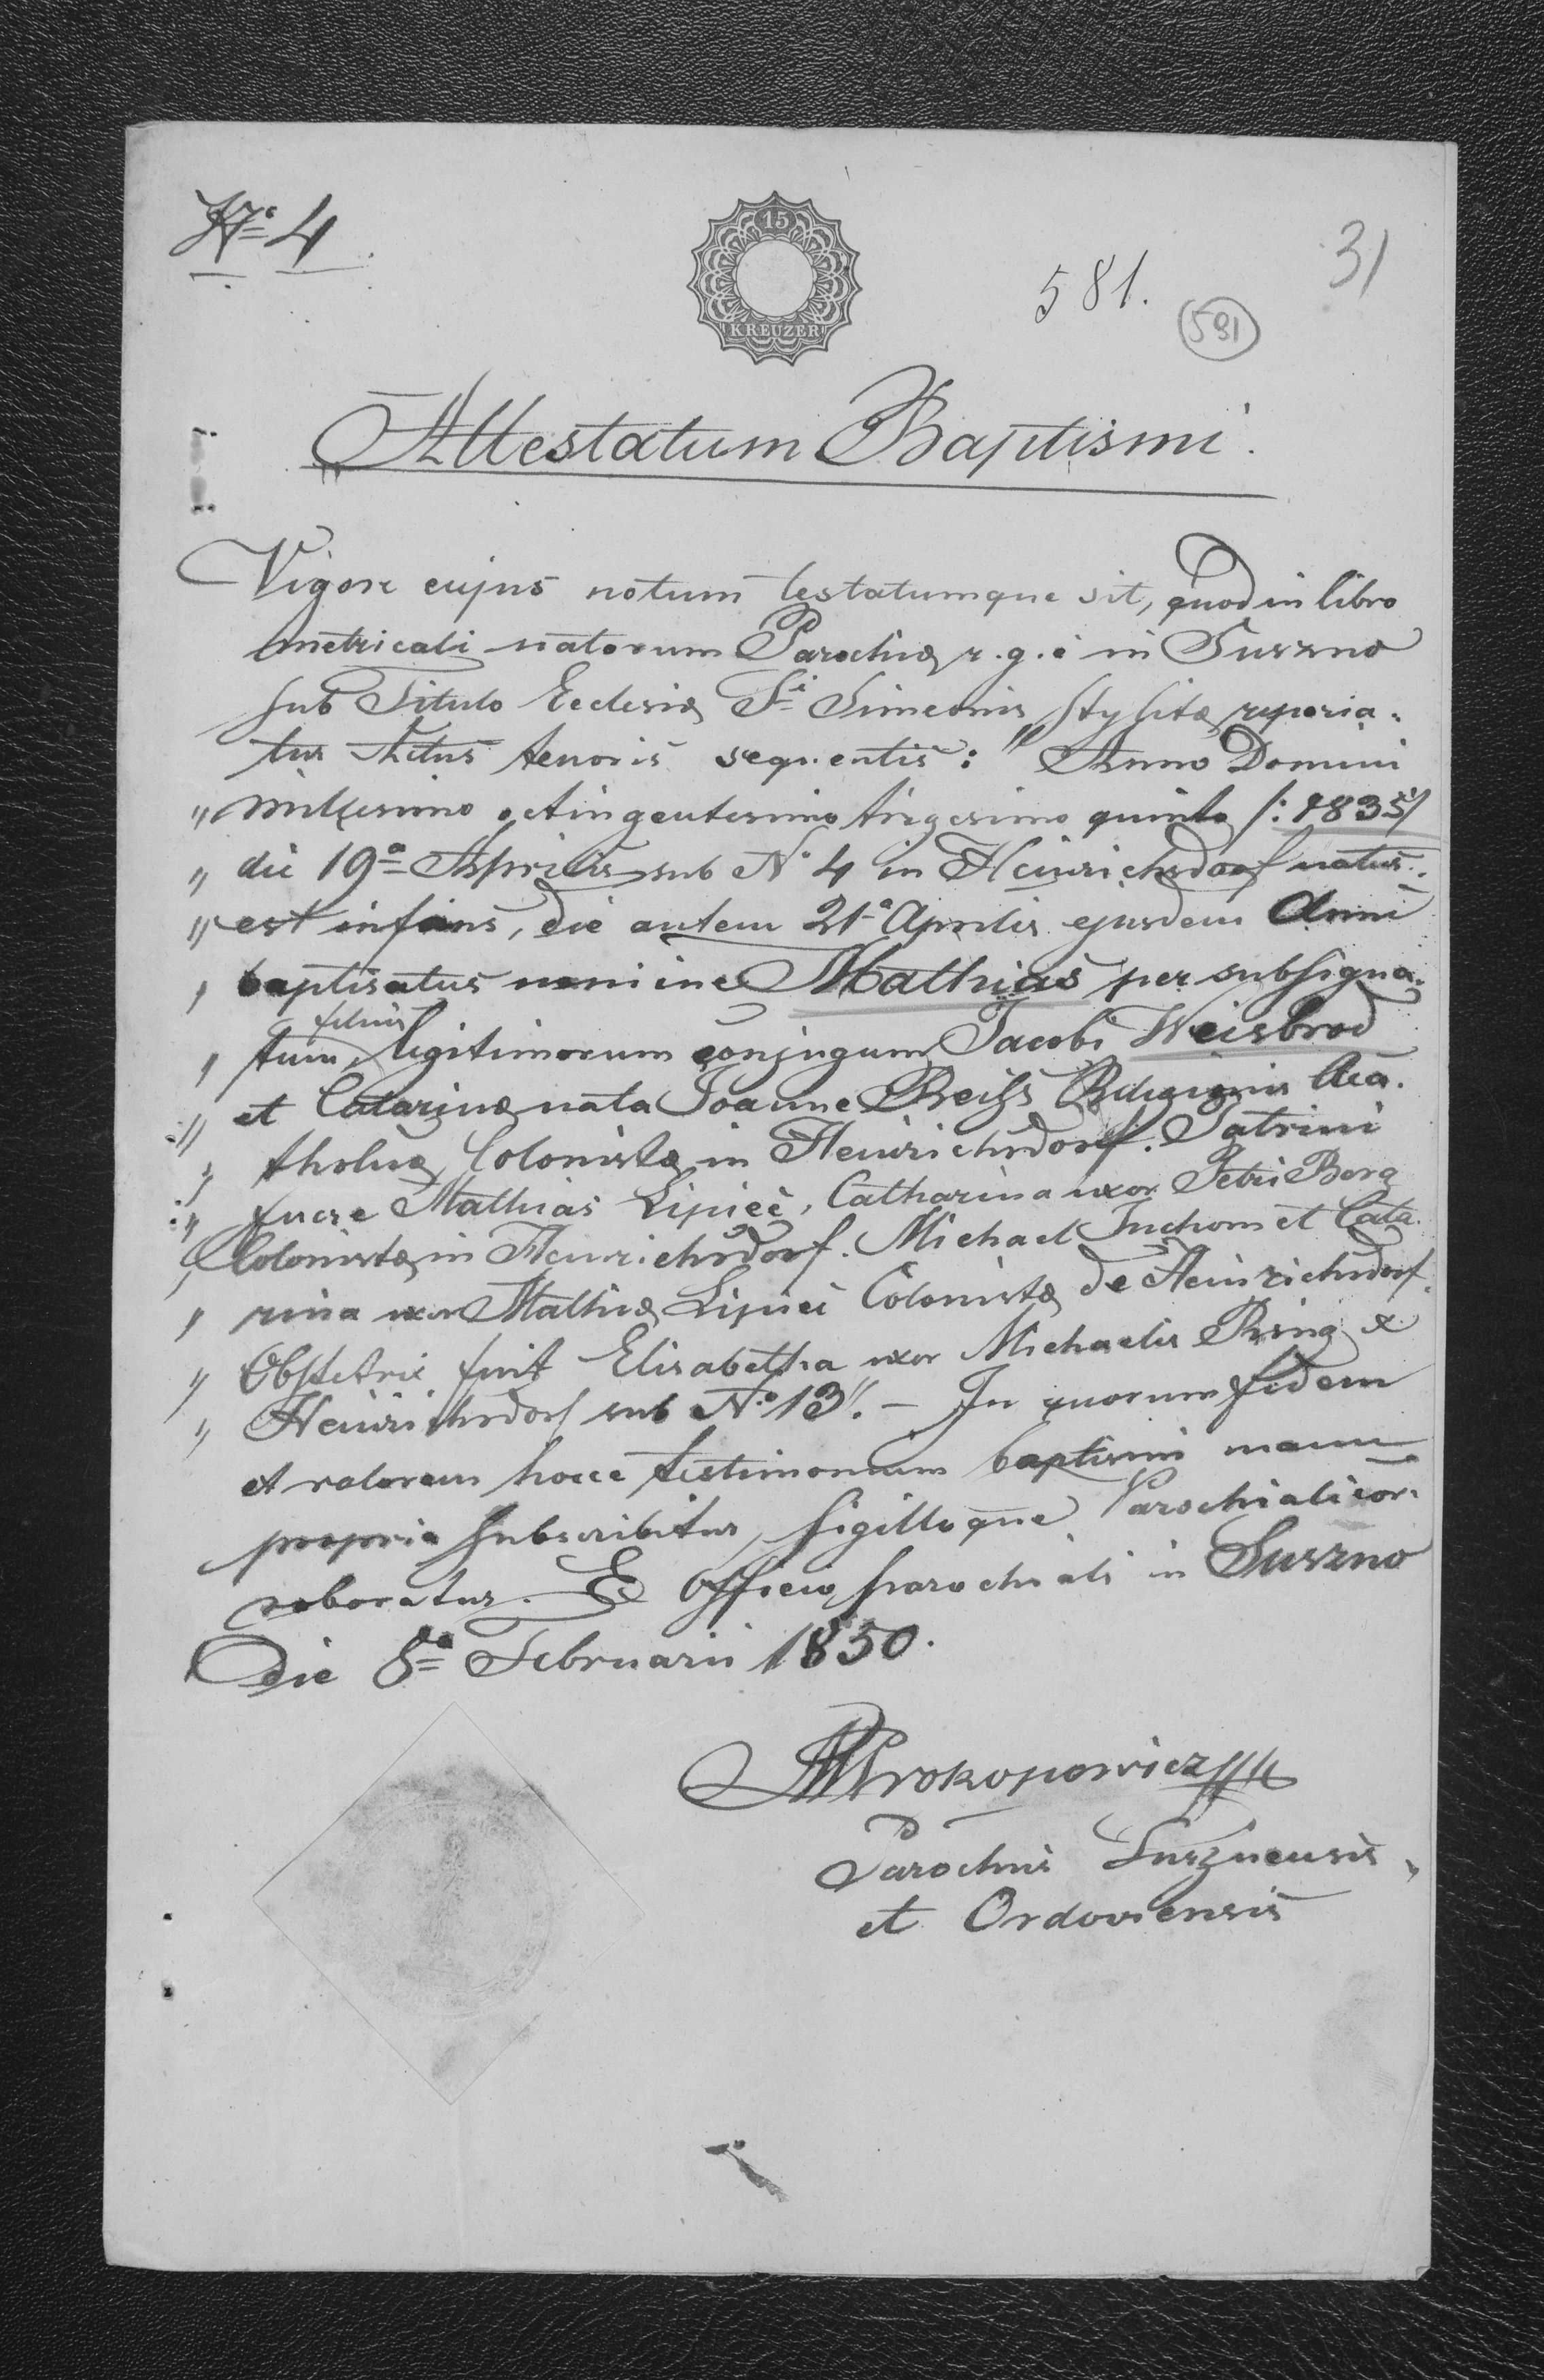 No 4.
15
KREUZER
581.
581
31
Attestatum Baptismi.
Vigore cujus notum testatumque sit, quod in libro
metricali natorum Parochiæ r.g.c in Suszno
sub Titulo Ecclesiæ Sti Simeonis Stylitæ reperia=
tur Actus tenoris sequentis: "Anno Domini
" millesimo octingentesimo trigesimo quinto /:1835/
" die 19a Aprilis sub No 4 in Heinrichsdorf natus
" est infans, die autem 21a Aprilis ejusdem Anni
" baptisatus nomine Mathias per subsigna=
filius
" tum, legitimorum conjugum Jacobi Weisbrod
" et Catarinæ nata Joanne Religionis Aca=
" tholicæ, Colonistæ in Heinrichsdorf. Patrini
" fuere Mathias Lipieć, Catharina uxor Petri Berg
" Colonistæ in Heinrichsdorf. Michael et Cata=
" rina uxor Mathiæ Lipieć Colonistæ de Heinrichsdorf.
" Obstetrix fuit Elisabetha uxor Michaelis Ring e
" Heinrichsdorf sub No 13". – In quorum fidem
et valorem hocce testimonium baptismi manu
propria subscribitur, sigilloque Parochiali cor=
roboratur. E Officio parochiali in Suszno
Die 8a Februarii 1850.
Prokopowicz
Parochus Susznensis
et Ordoviensis